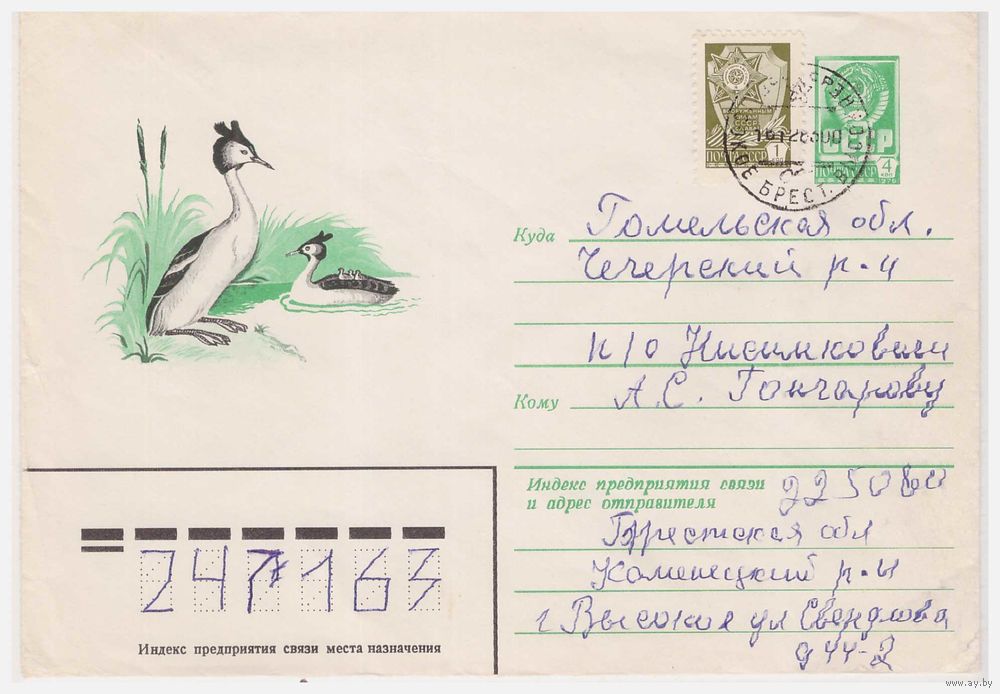 ВООРУЖЕННЫМ
СИЛАМ
СССР
ПОЧТА СССР 1
СССР
ПОЧТА СССР 4
КОП
1978
БРЕСТ.
Куда Гомельская обл.
Чечерский р-н
п/о Нисимковичи
Кому А.С. Гончарову
Индекс предприятия связи
и адрес отправителя
225080
Брестская обл
Каменецкий р-н
г Высокое ул Свердлова
д 44-2
247163
Индекс предприятия связи места назначения
www.ay.by